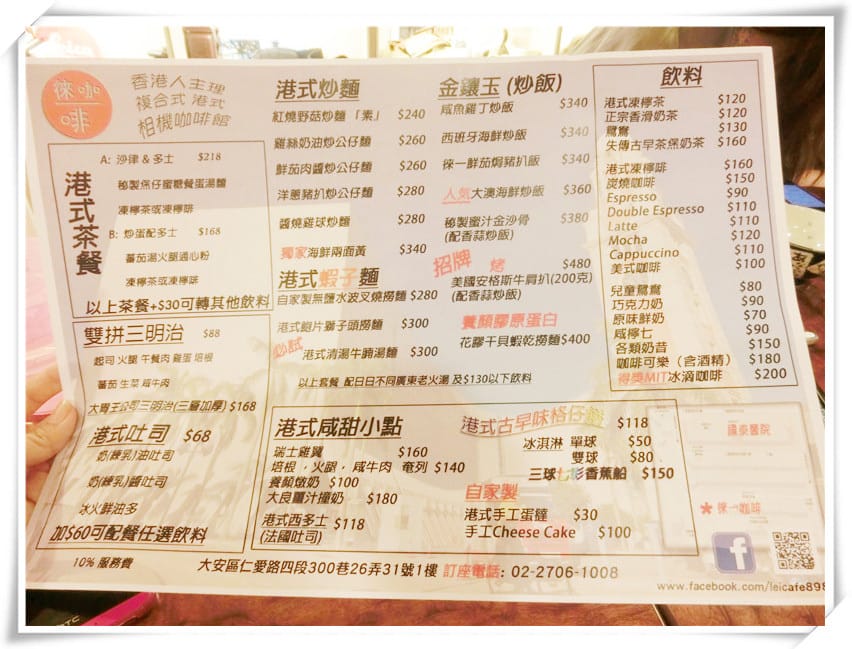 徠一咖啡
香港人主理
複合式 港式
相機咖啡館
港式茶餐
A: 沙律 & 多士 $218
秘製焦仔蜜糖餐蛋湯麵
凍檸茶或凍檸啡
B: 炒蛋配多士 $168
蕃茄湯火腿通心粉
凍檸茶或凍檸啡
以上茶餐+$30可轉其他飲料
雙拼三明治 $88
起司 火腿 午餐肉 雞蛋 培根
蕃茄 生菜 咸牛肉
大胃王公司三明治(三層加厚) $168
港式吐司 $68
奶(煉乳)油吐司
奶(煉乳)醬吐司
冰火鮮油多
加$60可配餐任選飲料
港式炒麵
紅燒野菇炒麵「素」 $240
雞絲奶油炒公仔麵 $260
鮮茄肉醬炒公仔麵 $260
洋蔥豬扒炒公仔麵 $280
醬燒雞球炒麵 $280
獨家海鮮兩面黃 $340
港式蝦子麵
自家製無鹽水波叉燒撈麵 $280
港式鮑片獅子頭撈麵 $300
必試 港式清湯牛腩湯麵 $300
以上套餐 配日日不同廣東老火湯 及$130以下飲料
金鑲玉 (炒飯)
咸魚雞丁炒飯 $340
西班牙海鮮炒飯 $340
徠一鮮茄焗豬扒飯 $340
人気 大澳海鮮炒飯 $360
秘製蜜汁金沙骨 $380
(配香蒜炒飯)
招牌 烤 $480
美國安格斯牛肩扒(200克)
(配香蒜炒飯)
養顏膠原蛋白
花膠干貝蝦乾撈麵$400
飲料
港式凍檸茶 $120
正宗香滑奶茶 $120
鴛鴦 $130
失傳古早茶煲奶茶 $160
港式凍檸啡 $160
炭燒咖啡 $150
Espresso $90
Double Espresso $110
Latte $110
Mocha $120
Cappuccino $110
美式咖啡 $100
兒童鴛鴦 $80
巧克力奶 $90
原味鮮奶 $70
咸檸七 $90
各類奶昔 $150
咖啡可樂（含酒精） $180
得獎MIT冰滴咖啡 $200
港式咸甜小點
瑞士雞翼 $160
培根，火腿，咸牛肉 奄列 $140
養顏燉奶 $100
大良薑汁撞奶 $180
港式西多士 $118
(法國吐司)
港式古早味格仔餅 $118
冰淇淋 單球 $50
雙球 $80
三球七彩香蕉船 $150
自家製
港式手工蛋撻 $30
手工Cheese Cake $100
國泰醫院
徠一咖啡
10% 服務費
大安區仁愛路四段300巷26弄31號1樓 訂座電話: 02-2706-1008
www.facebook.com/leicafe898